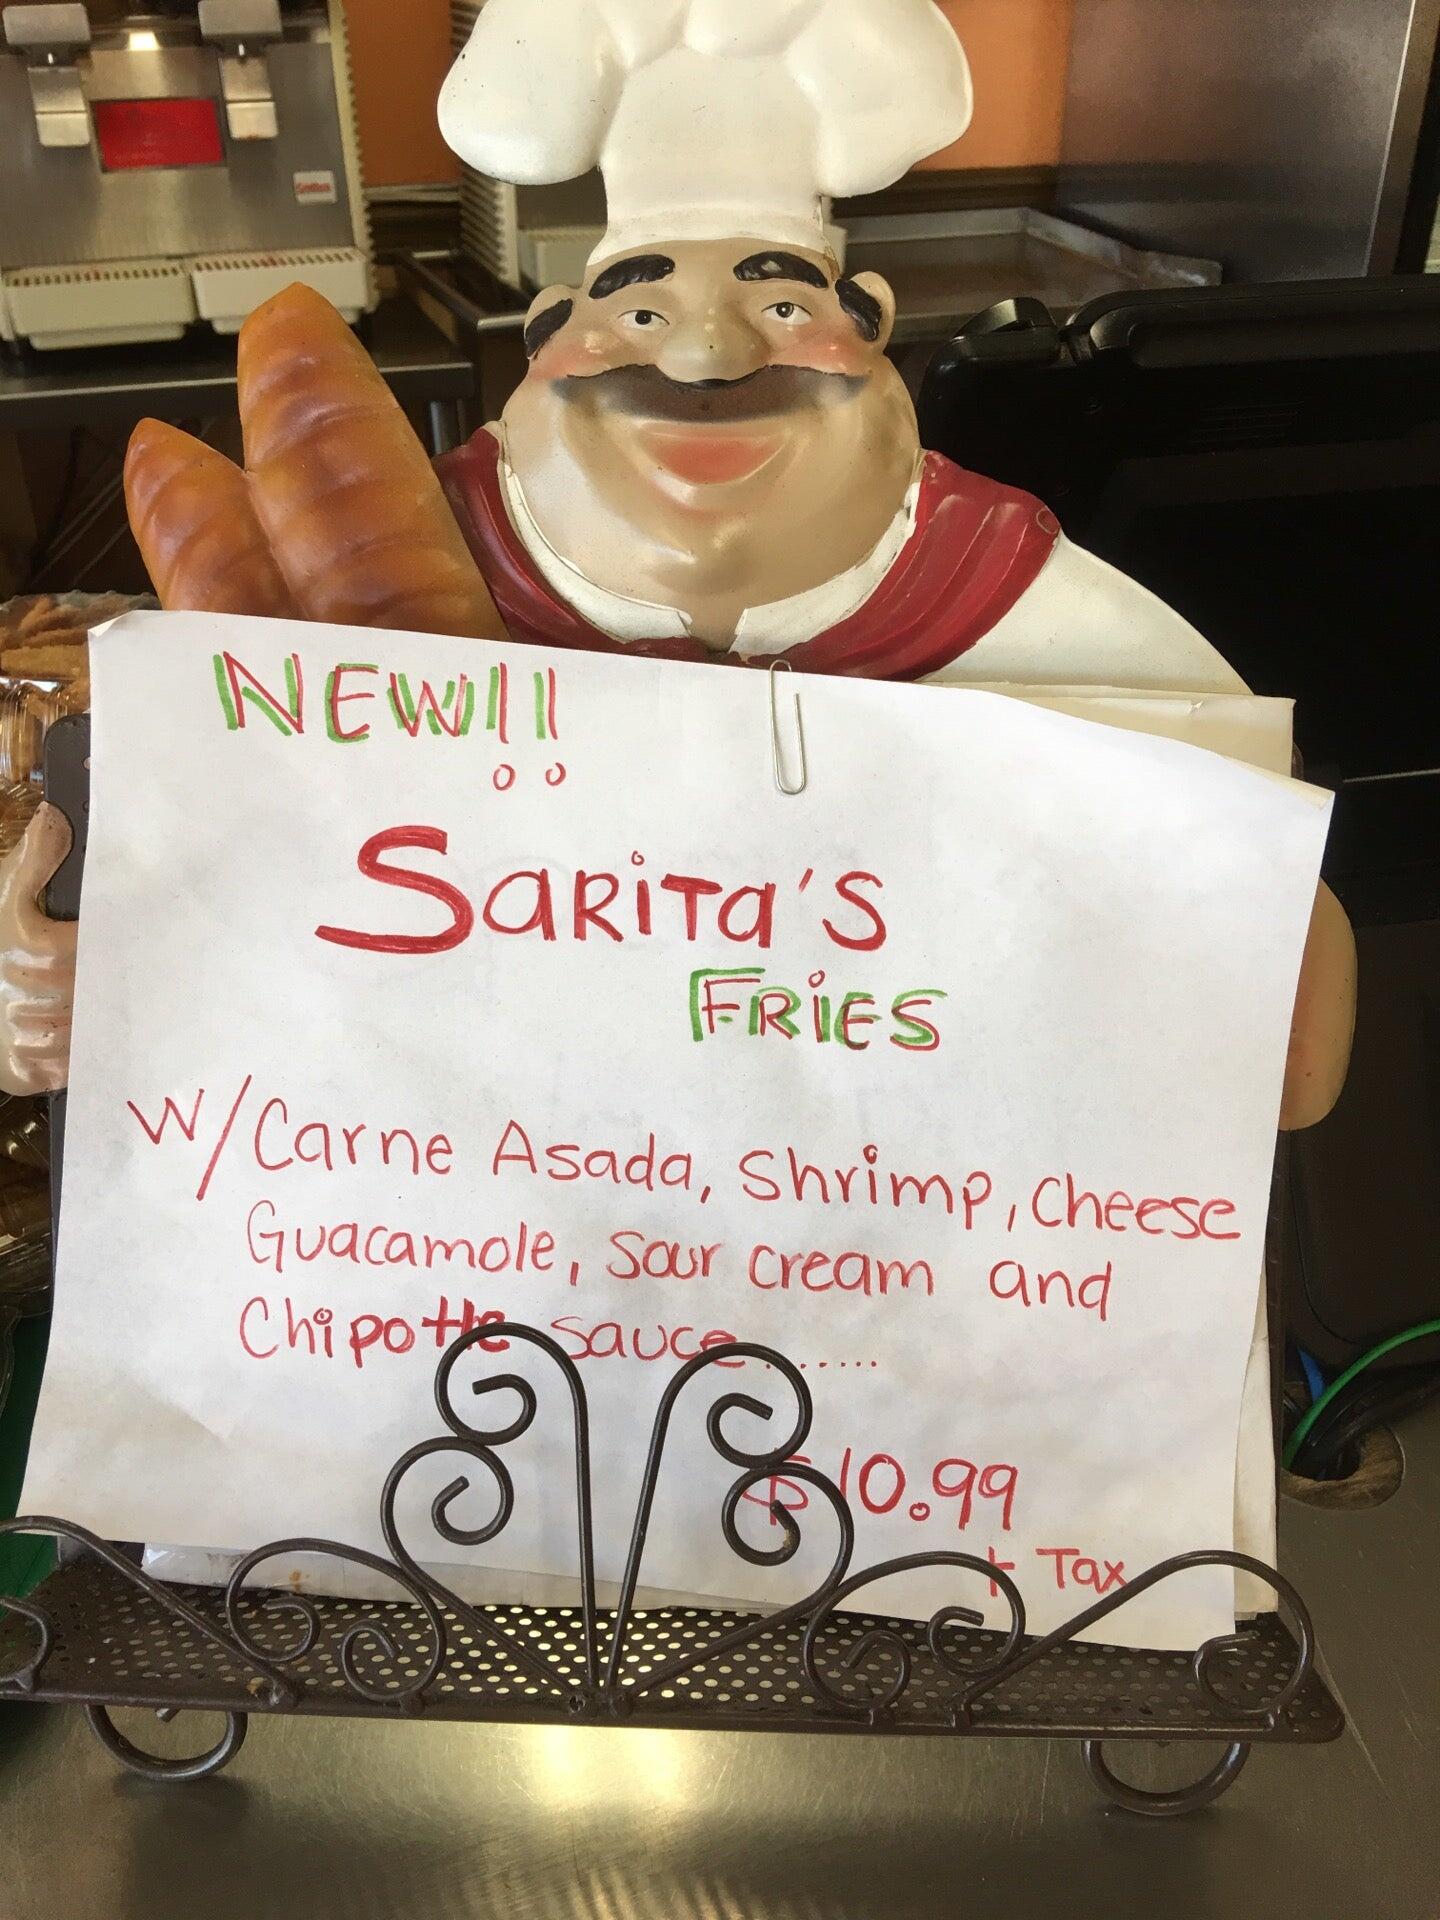 NEW!!
SARiTa'S
FRiES
W/Carne Asada, Shrimp, Cheese
Guacamole, Sour cream and
Chipotle sauce........
$10.99
+ Tax